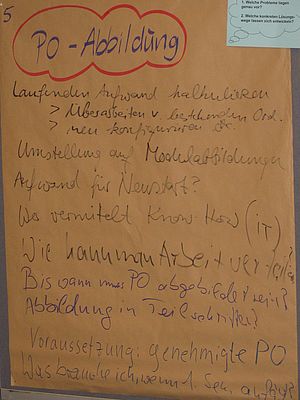 5
1. Welche Probleme liegen
genau vor?
2. Welche konkreten Lösungs-
wege lassen sich entwickeln?
PO - Abbildung
Laufenden Aufwand kalkulieren
> Überarbeiten v. bestehenden Ord.
> neu konfigurieren etc.
Umstellung auf Modulabbildungen
Aufwand für Neustart?
Wo vermittelt Know-How (IT)
Wie kann man Arbeit verteilen?
Bis wann muss PO abgebildet sein?
Abbildung in Teilschritten?
Voraussetzung: genehmigte PO
Was brauche ich, wenn 1. Sem.